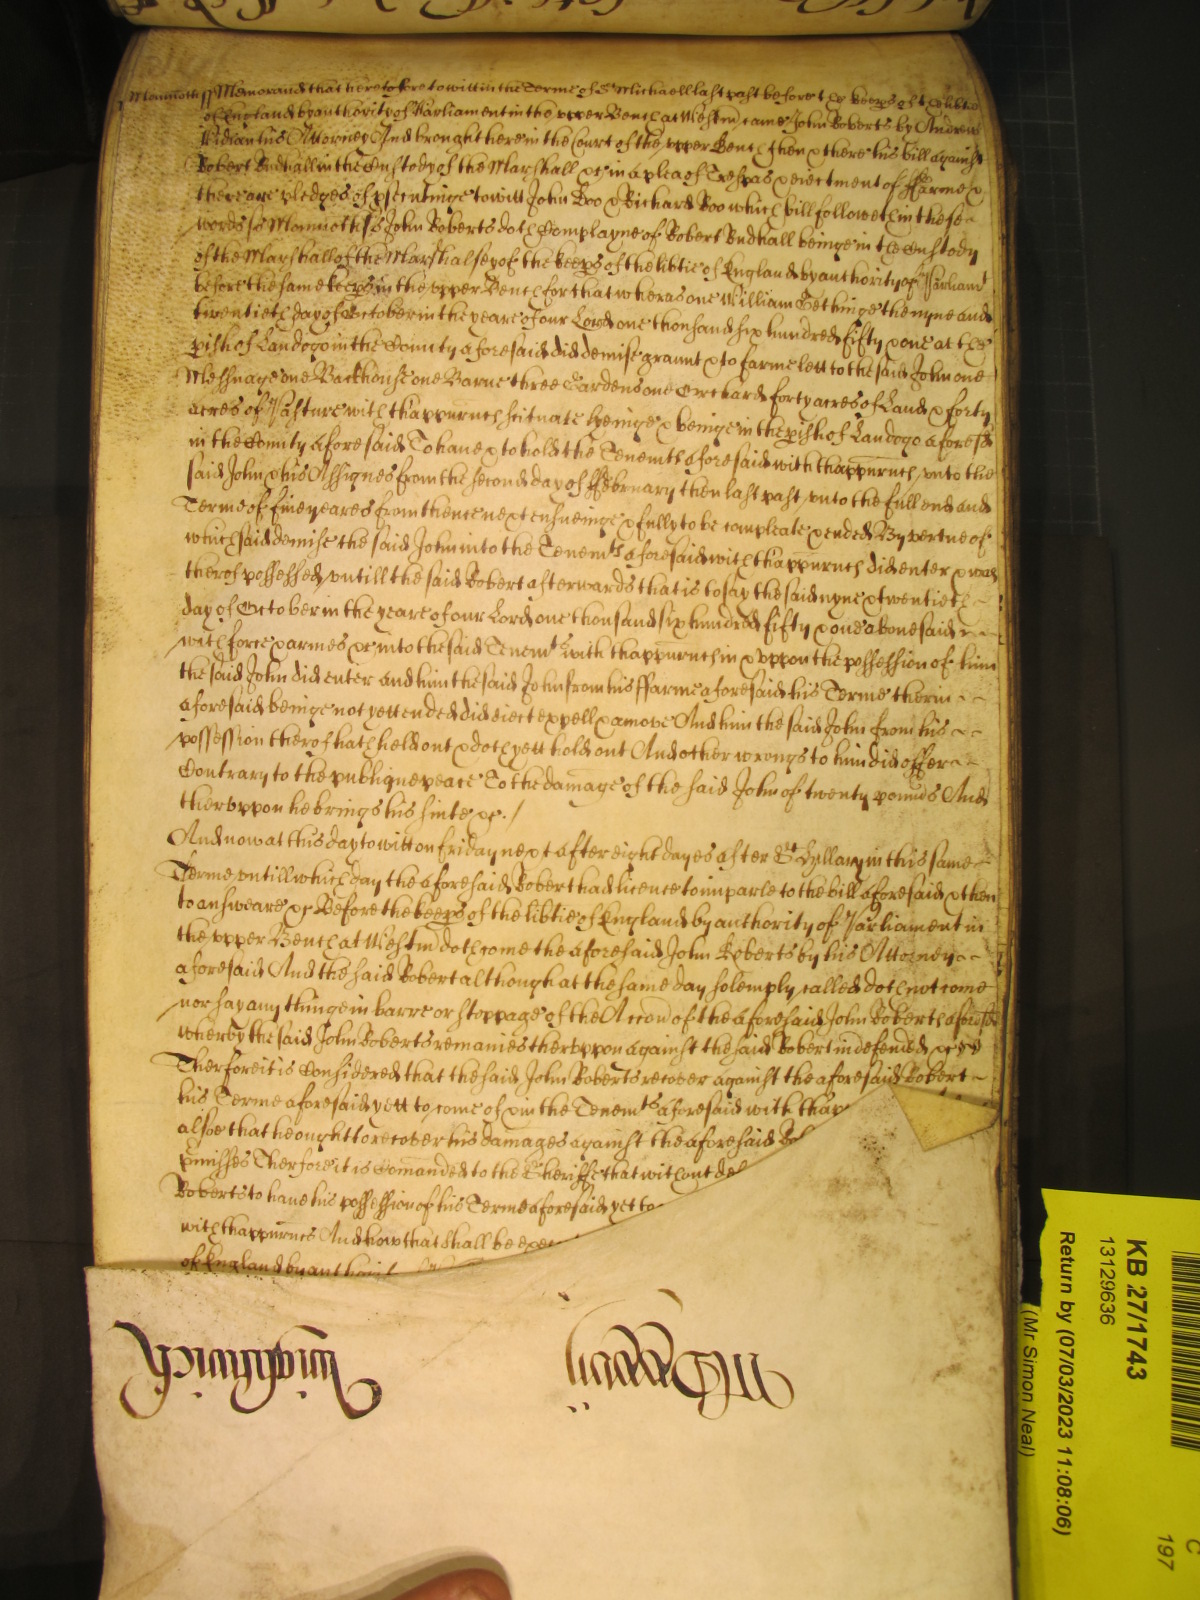 Monmoth ss Memorand that heretofore to witt in the Terme of St Michaell last past before the keeps of the libtie
of England by authority of Parliament in the upper Bench at Westm came John Roberts by Andrew
his Attorney And brought here in the Court of the upper Bench then & there his bill against
Robert Budhall in the Custody of the Marshall &c in a plea of Trespas & eiectment of ffarme &
there are pledges of psecutinge to witt John Doo & Richard Roo which bill followeth in these
words ss Monmoth ss John Roberts doth Complayne of Robert Budhall beinge in the Custody
of the Marshall of the Marshalsey of the keeps of the libtie of England by authority of Parliamt
before the same keeps in the upper Bench for that wheras one William Gethinge the nyne and
twentieth day of October in the yeare of our Lord one thousand six hundred fifty & one at the
pish of Landogo in the County aforesaid did demise graunt & to farme lett to the said John one
Messuage one Backhouse one Barne three Gardens one Orchard forty acres of Land & forty
acres of Pasture with thappurtncs scituate lyeinge & beinge in the pish of Landogo aforesd
in the County aforesaid To haue & to hold the Tenemts aforesaid with thappurtncs unto the
said John & his Assignes from the second day of ffebruary then last past unto the full end and
Terme of fiue yeares from thence next ensueinge & fully to be compleate & ended By vertue of
which said demise the said John into the Tenemts aforesaid with thappurtncs did enter & was
therof possessed untill the said Robert afterwards that is to say the said nyne & twentieth
day of October in the yeare of our Lord one thousand six hundred fifty & one abouesaid
with force & armes &c into the said Tenemts with thappurtncs in & uppon the possession of him
the said John did enter and him the said John from his ffarme aforesaid his Terme therin
aforesaid beinge not yett ended did eiect expell & amove And him the said John from his
possession therof hath held out & doth yett hold out And other wrongs to him did offer
Contrary to the publique peace To the damage of the said John of twenty pounds And
theruppon he brings his suite &c. /
And now at this day to witt on Friday next after eight dayes after St Hyllary in this same
Terme untill which day the aforesaid Robert had licence to imparle to the bill aforesaid & then
to answeare &c Before the keeps of the libtie of England by authority of Parliament in
the upper Bench at Westm doth come the aforesaid John Roberts by his Attorney
aforesaid And the said Robert although at the same day solemply called doth not come
nor say any thinge in barre or stoppage of the Accon of the aforesaid John Roberts aforesd
wherby the said John Roberts remaines theruppon against the said Robert indefended &c
Therfore it is Considered that the said John Roberts recover against the aforesaid Robert
his Terme aforesaid yett to come of & in the Tenemts aforesaid with thapp
alsoe that he ought to recover his damages against the aforesaid Ro
pmisses Therfore it is Comanded to the Sheriffe that without del
Roberts to haue his possession of his Terme aforesaid yet to
with thappurtncs And how that shall be exec
of England by authorit
KB 27/1743
13129636
Return by (07/03/2023 11:08:06)
(Mr Simon Neal)
C
197